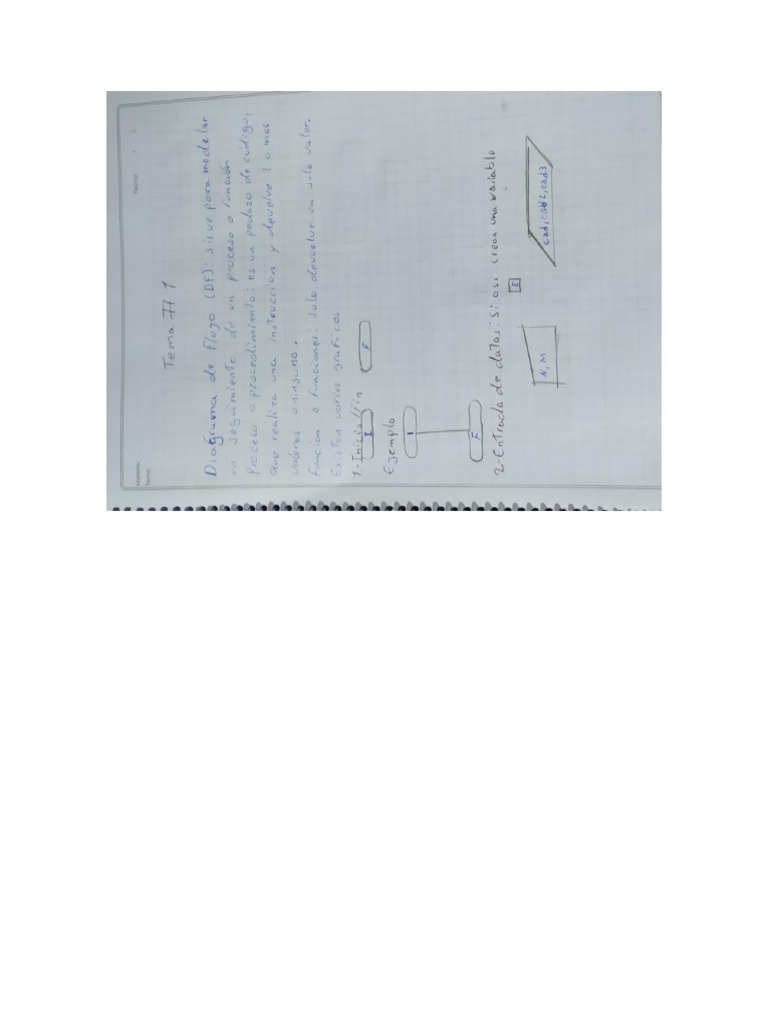 Tema #1
Diagrama de Flujo (DF): sirve para modelar
un seguimiento de un proceso o función
Proceso o procedimiento: es un pedazo de código,
que realiza una instrucción y devuelve 2 o mas
valores o ninguno.
Funcion o funciones: solo devuelve un solo valor.
Existen varios graficos
1-Inicio/Fin
I
F
Ejemplo
I
F
2-Entrada de datos: Si osi crean una variable
E
N, M
cad, cad2, cad3